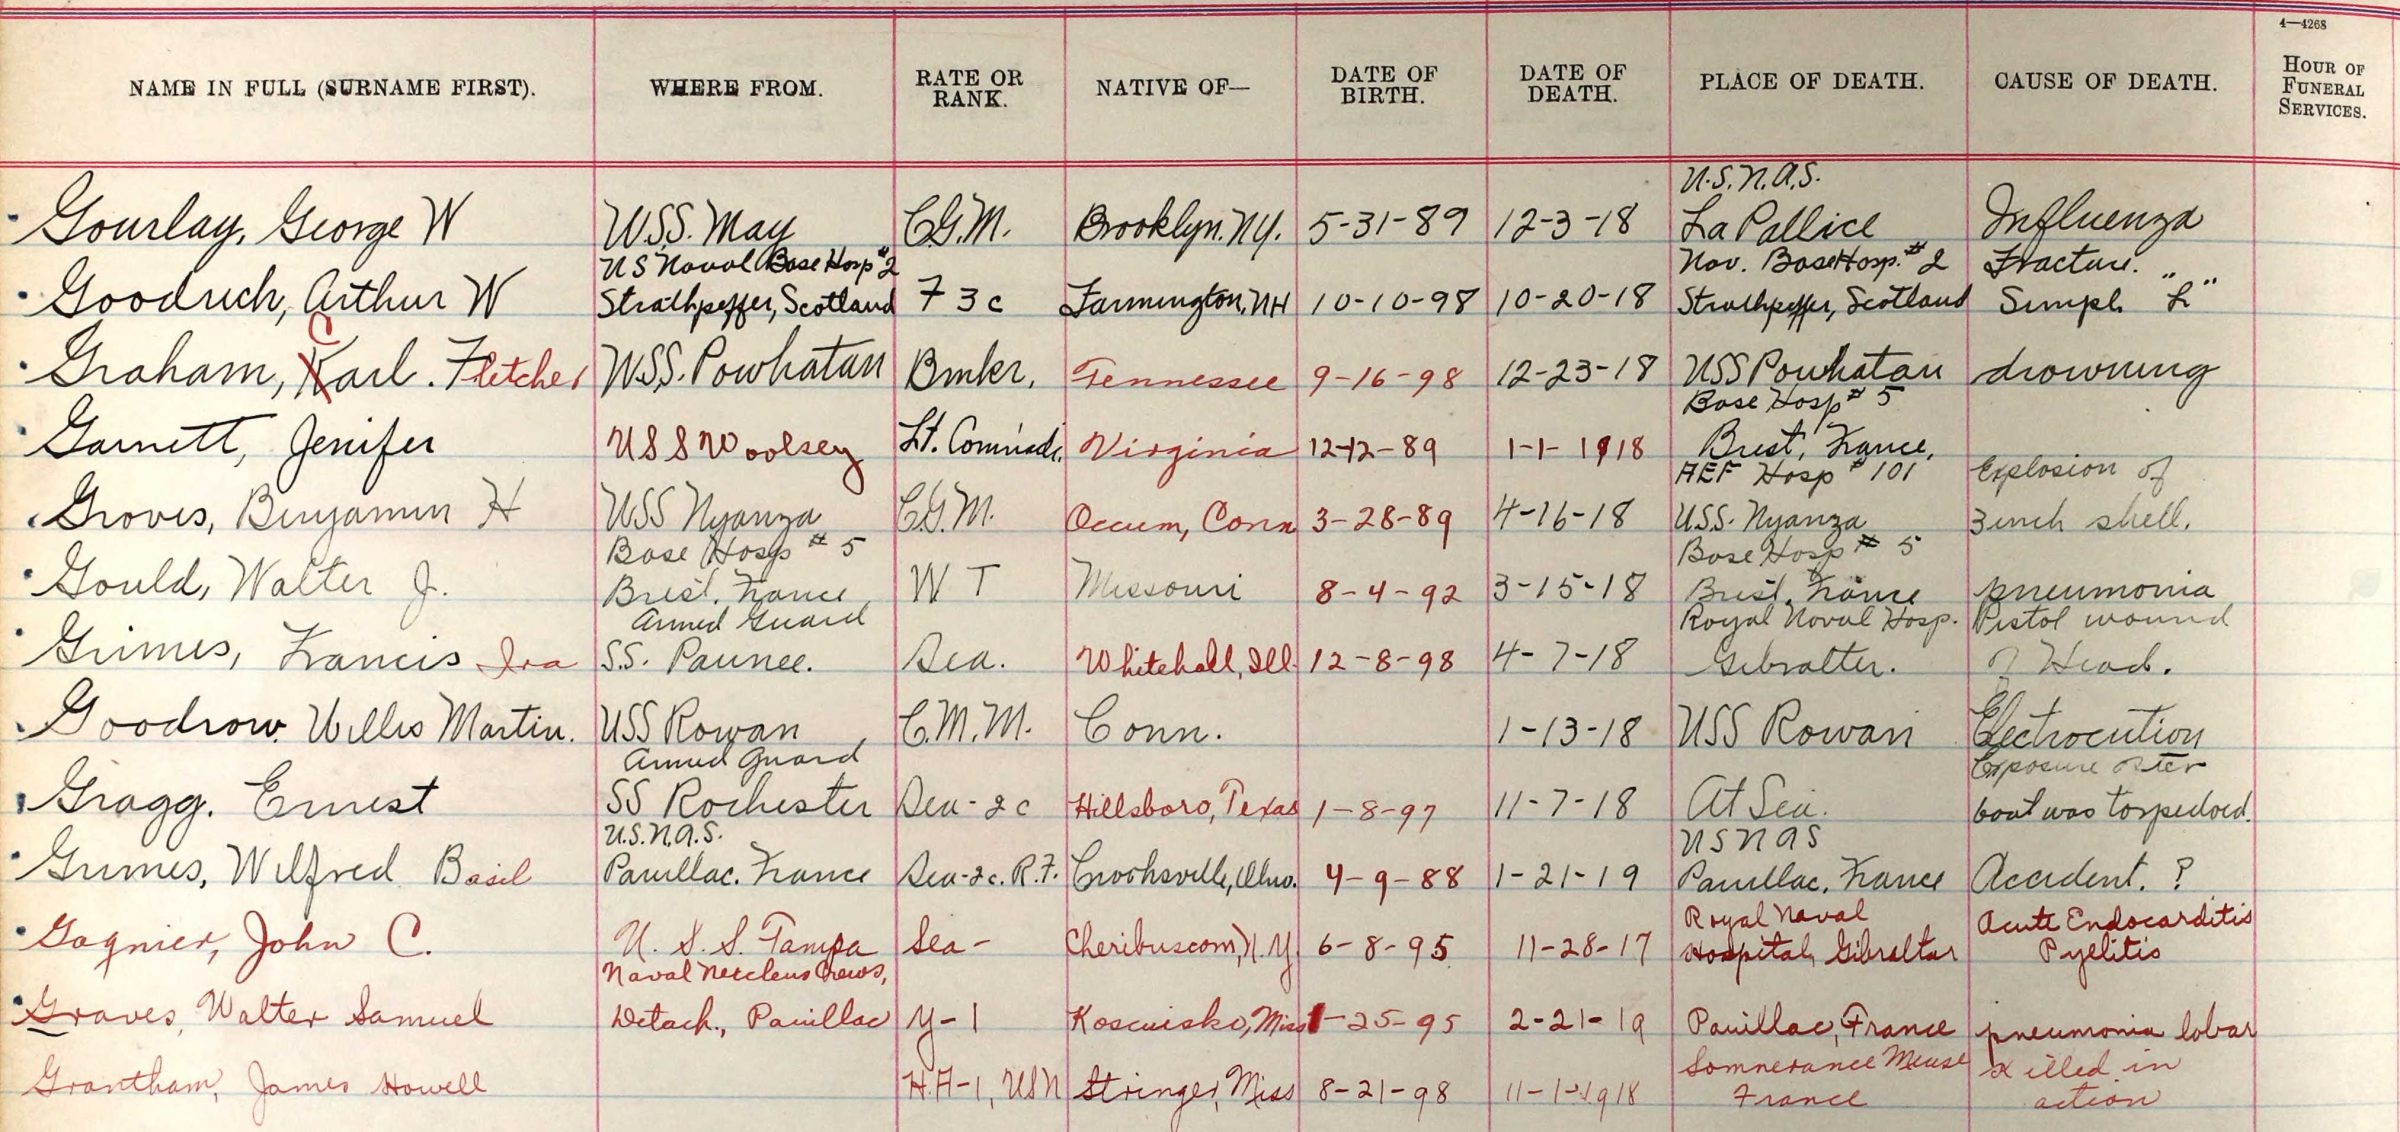 4—4268
NAME IN FULL (SURNAME FIRST). WHERE FROM. RATE OR RANK. NATIVE OF— DATE OF BIRTH. DATE OF DEATH. PLACE OF DEATH. CAUSE OF DEATH. HOUR OF FUNERAL SERVICES.
U.S.N.A.S.
Gourlay, George W U.S.S. May C.G.M. Brooklyn. N.Y. 5-31-89 12-3-18 La Pallice Influenza
US Naval Base Hosp #2 Nav. Base Hosp. #2 Fracture.
Goodrich, Arthur W Strathpeffer, Scotland F 3 c Farmington, NH 10-10-98 10-20-18 Strathpeffer, Scotland Simple "L"
C
Graham, Karl. Fletcher U.S.S. Powhatan Bmkr. Tennessee 9-16-98 12-23-18 USS Powhatan drowning
Base Hosp #5
Garnett, Jenifer USS Woolsey Lt. Virginia 12-12-89 1-1-1918 Brest, France,
AEF Hosp #101 Explosion of
Groves, Benjamin H USS Nyanza C.G.M. Occum, Conn 3-28-89 4-16-18 U.S.S. Nyanza 3 inch shell.
Base Hosp #5 Base Hosp #5
Gould, Walter J. Brest, France W T Missouri 8-4-92 3-15-18 Brest, France pneumonia
Armed Guard Royal Naval Hosp. Pistol wound
Grimes, Francis Ira S.S. Paunee. Sea. Whitehall, Ill. 12-8-98 4-7-18 Gibralter. of Head.
Goodrow, Willis Martin. USS Rowan C.M.M. Conn. 1-13-18 USS Rowan Electrocution
Armed Guard Exposure after
Gragg. Ernest SS Rochester Sea-2c Hillsboro, Texas 1-8-97 11-7-18 At Sea. boat was torpedoed.
U.S.N.A.S. USNAS
Grimes, Wilfred Basil Pauillac. France Sea-2c. R.F. Crooksville, Ohio. 4-9-88 1-21-19 Pauillac, France Accident. ?
Royal Naval Acute Endocarditis
Gagnier, John C. U.S.S. Tampa Sea- Cheribuscom, N.Y. 6-8-95 11-28-17 Hospital, Gibraltar Pyelitis
Naval Crews,
Graves, Walter Samuel Detach., Pauillac Y-1 Koscuisko, Miss 1-25-95 2-21-19 Pauillac, France pneumonia lobar
Somnerance Meuse Killed in
Grantham, James Howell H.A-1, USN Stringer, Miss 8-21-98 11-1-1918 France action